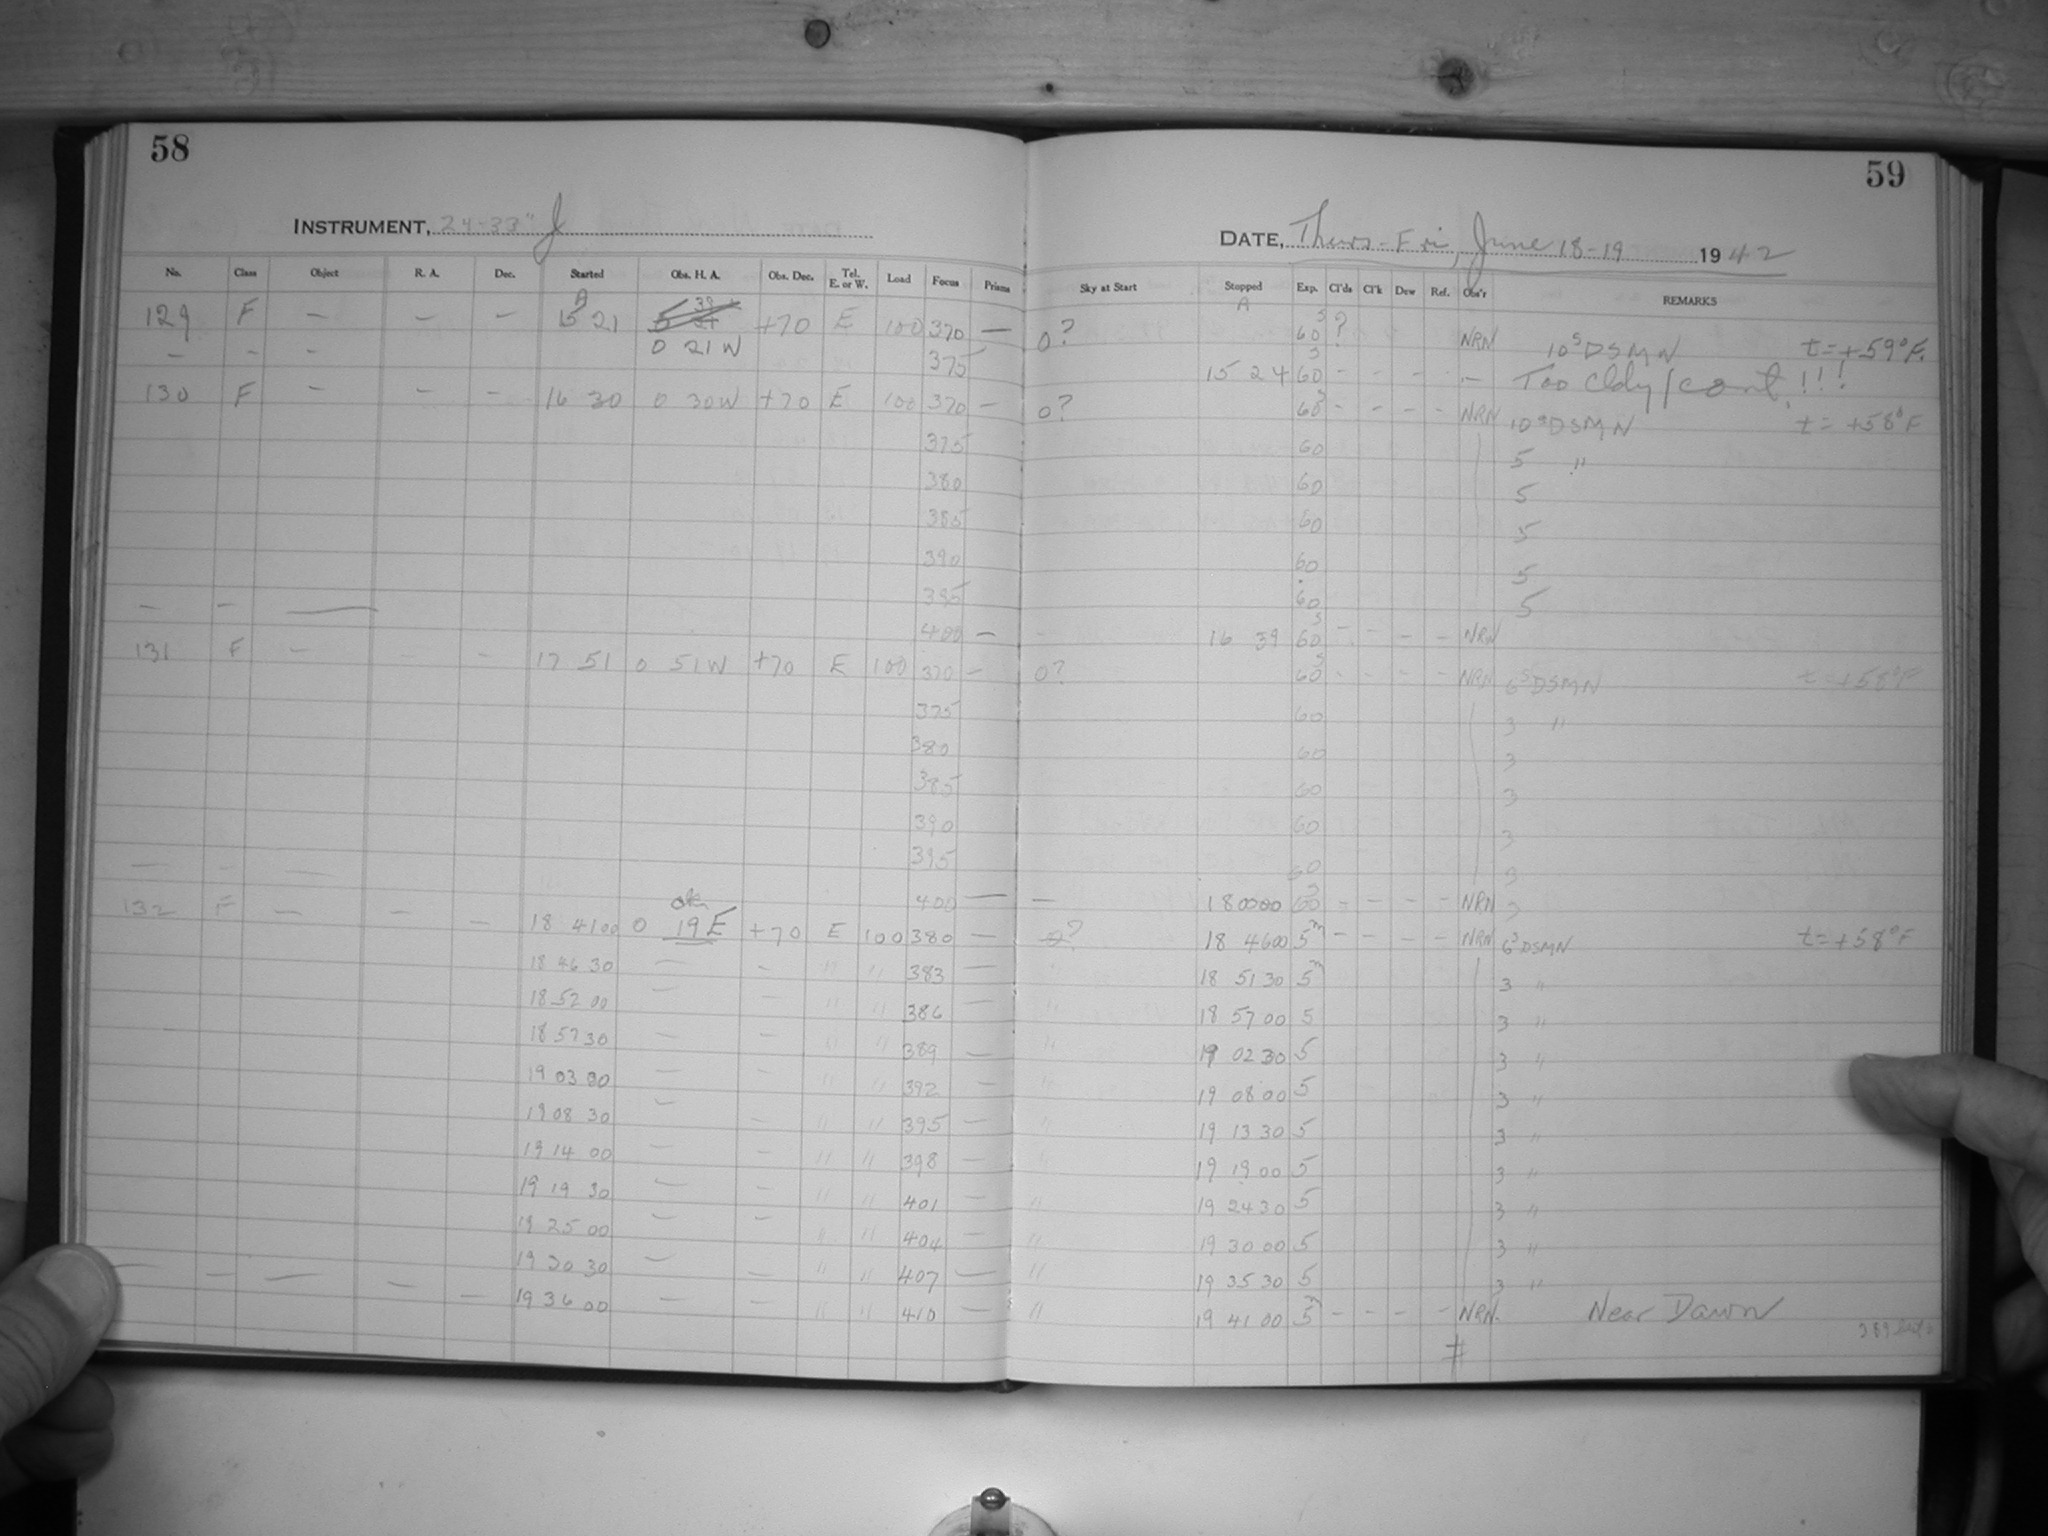 58
INSTRUMENT, 24-33" J
No. Class Object R. A. Dec. Started Obs. H. A. Obs. Dec. Tel. E. or W. Load Focus Prisms
A
129 F — — — 15 21 +70 E 100 370 —
0 21 W
— — — 375
130 F — — — 16 30 0 30W +70 E 100 370 —
375
380
385
390
395
— — —
400 —
131 F — — — 17 51 0 51W +70 E 100 370 —
375
380
385
390
395
— — —
400 —
132 F — — — 18 41 00 0 19 E +70 E 100 380 —
18 46 30 — — " " 383 —
18 52 00 — — " " 386 —
18 57 30 — — " " 389 —
19 03 00 — — " " 392 —
19 08 30 — — " " 395 —
19 14 00 — — " " 398 —
19 19 30 — — " " 401 —
19 25 00 — — " " 404 —
19 30 30 — — " " 407 —
— — — — — 19 36 00 — — " " 410 —
59
DATE, Thurs-Fri, June 18-19 1942
Sky at Start Stopped Exp. Cl'ds Cl'k Dew Ref. Obs'r REMARKS
A
0? 60s ? NRN 10s DSMN t=+59°F.
15 24 60s - - - - — Too Cldy/cont.!!!
0? 60s - - - - NRN 10s DSMN t=+58°F
60 5 "
60 5
60 5
60 5
60 5
- 16 39 60s - - - - NRN
0? 60s - - - - NRN 6s DSMN t=+58°F
60 3 "
60 3
60 3
60 3
60 3
— 18 00 00 60s - - - - NRN 3
0? 18 46 00 5m - - - - NRN 6s DSMN t=+58°F
" 18 51 30 5m 3 "
" 18 57 00 5 3 "
" 19 02 30 5 3 "
" 19 08 00 5 3 "
" 19 13 30 5 3 "
" 19 19 00 5 3 "
" 19 24 30 5 3 "
" 19 30 00 5 3 "
" 19 35 30 5 3 "
" 19 41 00 5m - - - - NRN. Near Dawn